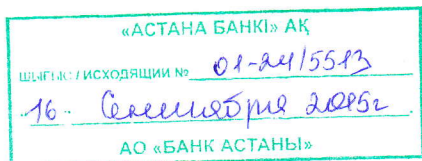 «АСТАНА БАНКІ» АҚ
ШЫҒЫС / ИСХОДЯЩИИ № 01-24/5513
16. Сентября 2015г.
АО «БАНК АСТАНЫ»